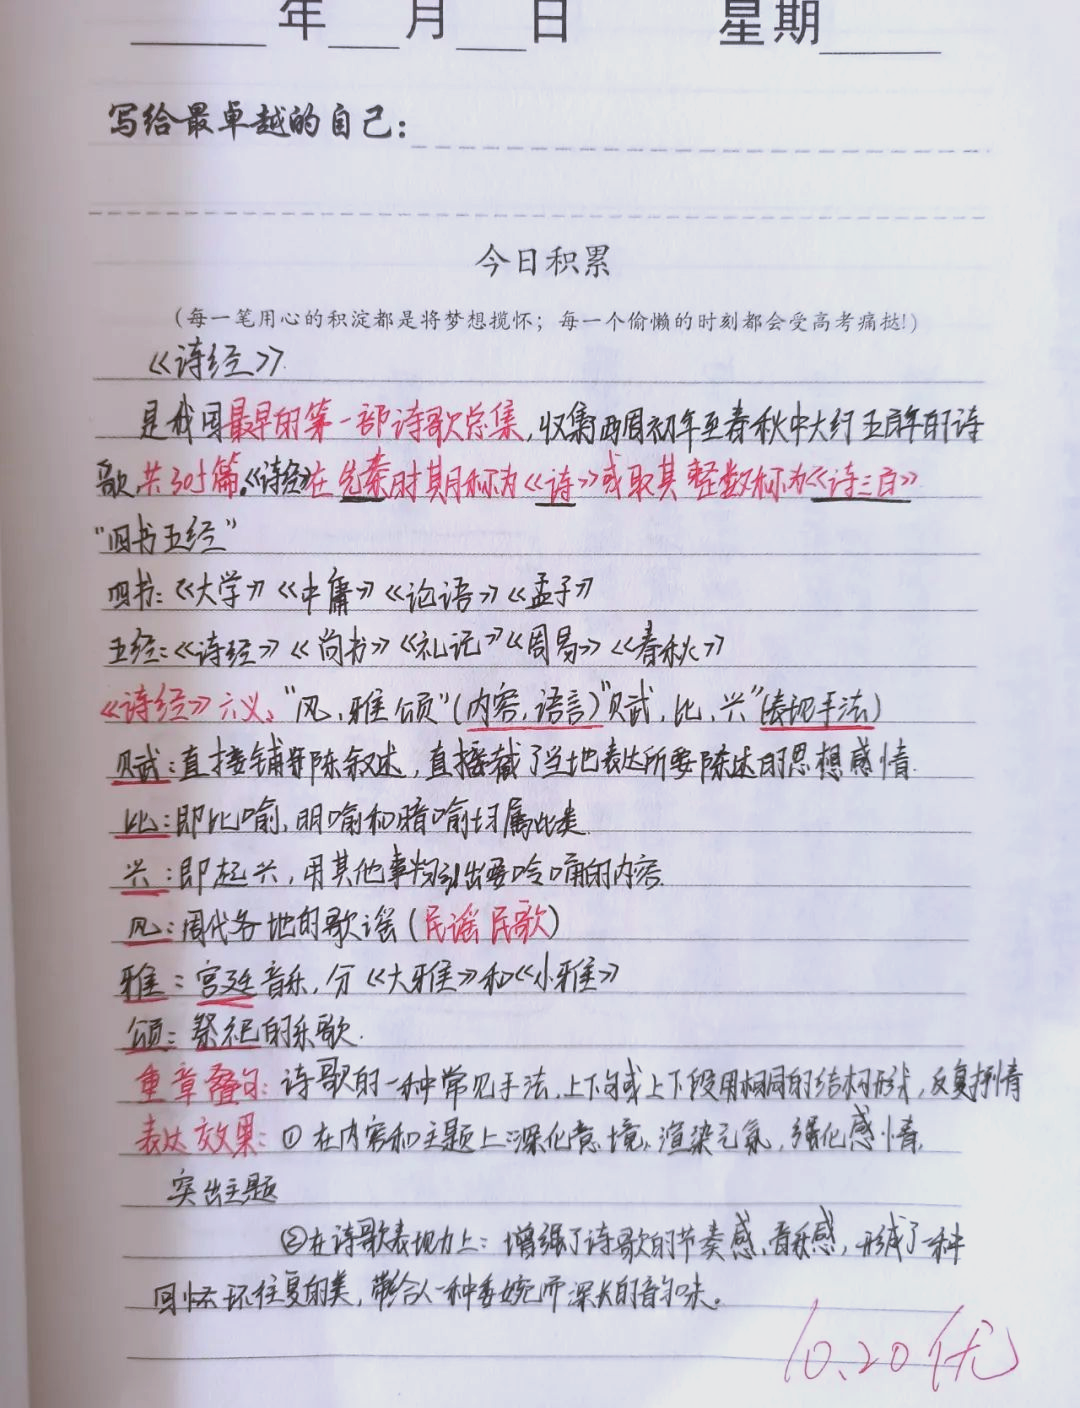 年 月 日 星期
写给最卓越的自己:
今日积累
(每一笔用心的积淀都是将梦想揽怀; 每一个偷懒的时刻都会受高考痛挞!)
《诗经》
是我国最早的第一部诗歌总集,收集西周初年至春秋中大约五百年的诗
歌,共305篇。《诗经》在先秦时其月称为《诗》或取其整数称为《诗三百》
“四书五经”
四书:《大学》《中庸》《论语》《孟子》
五经:《诗经》《尚书》《礼记》《周易》《春秋》
《诗经》六义、“风、雅颂”(内容,语言)“赋,比、兴”(表现手法)
赋:直接铺陈叙述,直接了当地表达所要陈述的思想感情.
比:即比喻,明喻和暗喻均属此类.
兴:即起兴,用其他事物引出要吟诵的内容.
风:周代各地的歌谣(民谣民歌)
雅:宫廷音乐,分《大雅》和《小雅》
颂:祭祀的乐歌.
重章叠句:诗歌的一种常见手法,上下句或上下段用相同的结构形式,反复抒情
表达效果:①在内容和主题上:深化意境,渲染元氛,强化感情,
突出主题
②在诗歌表现力上:增强了诗歌的节奏感,音乐感,形成了一种
回环往复的美,带给人一种委婉而深长的韵味。
10.20 优